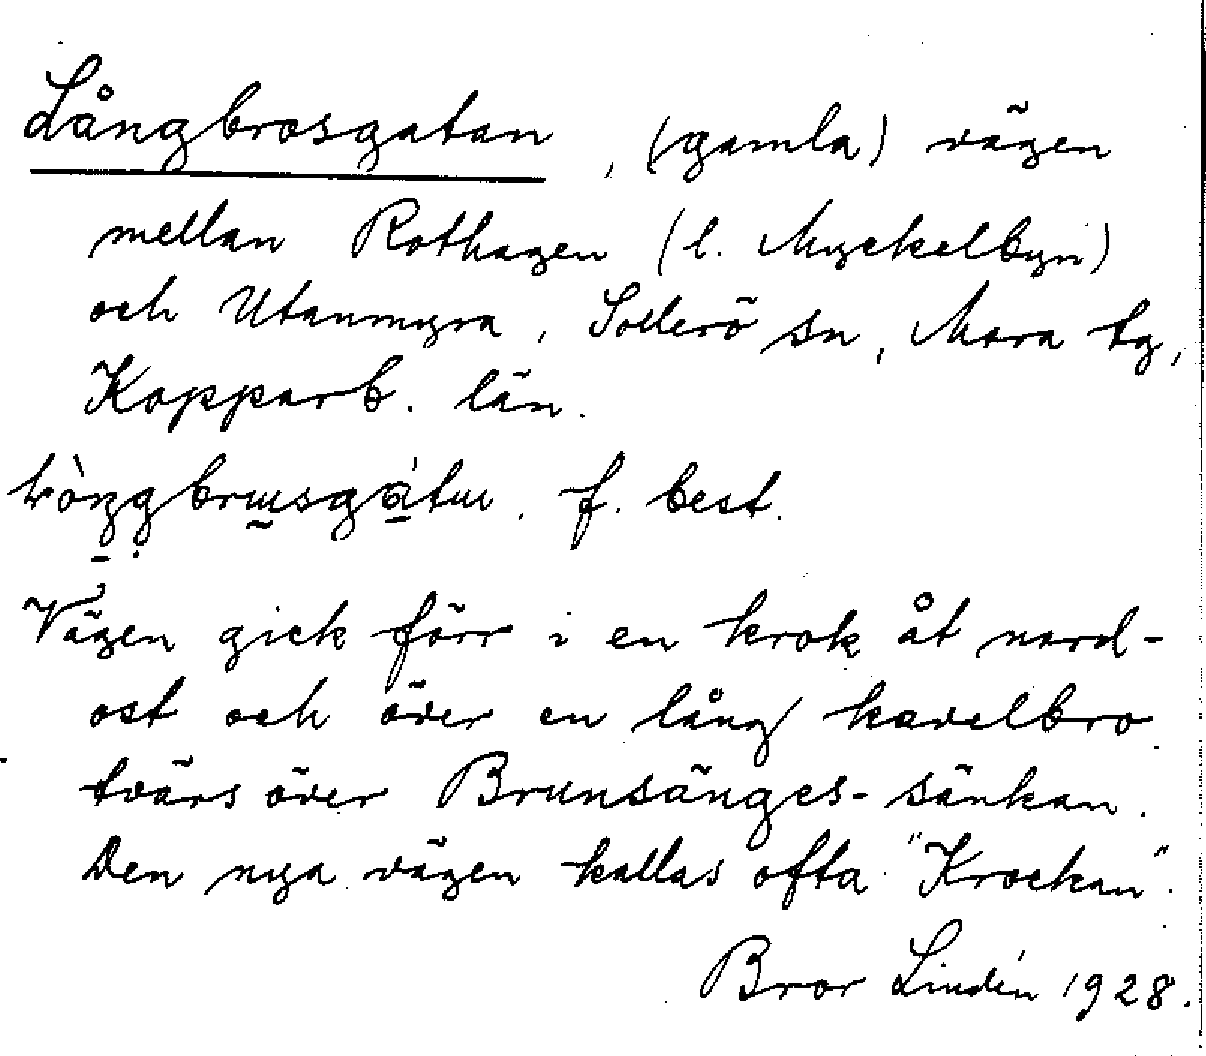 Långbrosgatan, (gamla) vägen
mellan Rothagen (l. Myckelbyn)
och Utanmyra, Sollerö sn, Mora tg,
Kopparb. län.
f. best.
Vägen gick förr i en krok åt nord-
ost och över en lång kavelbro
tvärs över Brunsänges-sänkan.
Den nya vägen kallas ofta "Krockan".
Bror Lindén 1928.